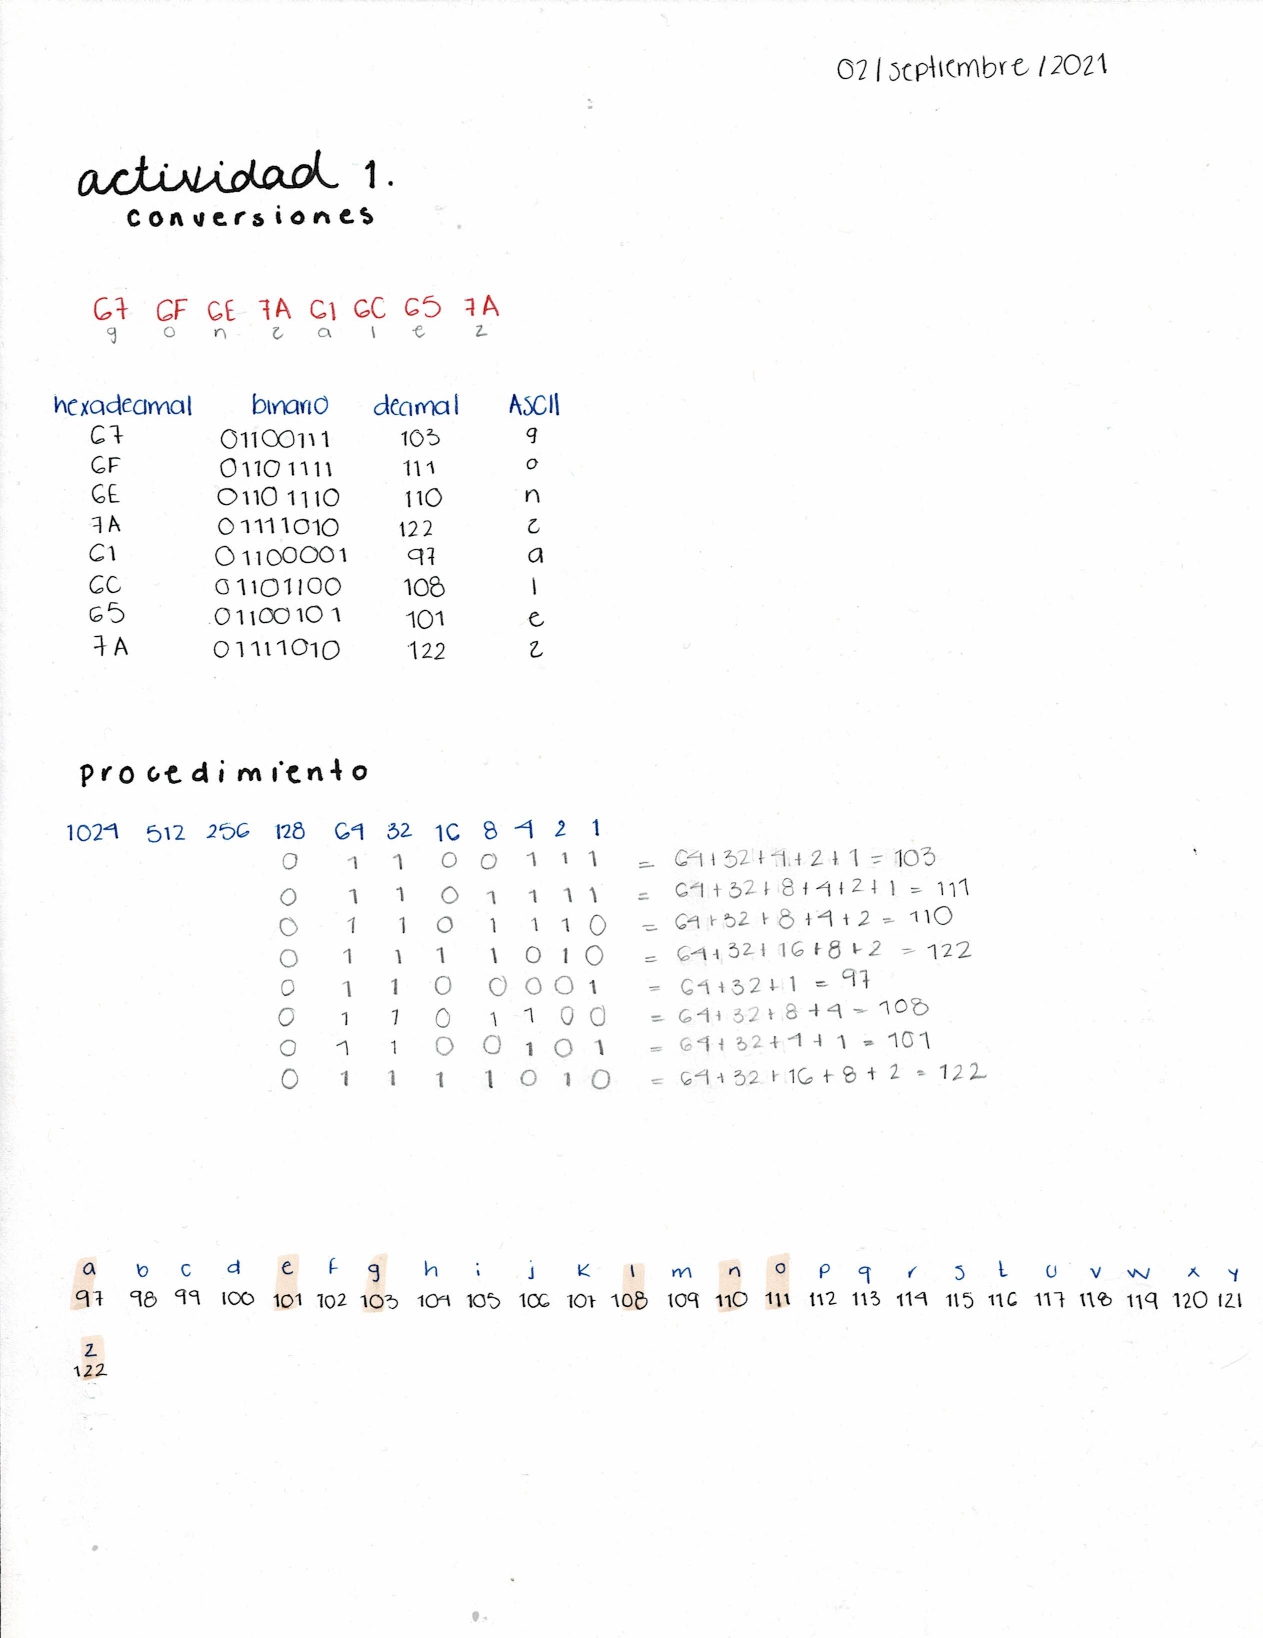 02/septiembre/2021
actividad 1.
conversiones
67 6F 6E 7A 61 6C 65 7A
g o n z a l e z
hexadecimal binario decimal ASCII
67 01100111 103 g
6F 01101111 111 o
6E 01101110 110 n
7A 01111010 122 z
61 01100001 97 a
6C 01101100 108 l
65 01100101 101 e
7A 01111010 122 z
procedimiento
1024 512 256 128 64 32 16 8 4 2 1
0 1 1 0 0 1 1 1 = 64+32+4+2+1=103
0 1 1 0 1 1 1 1 = 64+32+8+4+2+1=111
0 1 1 0 1 1 1 0 = 64+32+8+4+2=110
0 1 1 1 1 0 1 0 = 64+32+16+8+2=122
0 1 1 0 0 0 0 1 = 64+32+1=97
0 1 1 0 1 1 0 0 = 64+32+8+4=108
0 1 1 0 0 1 0 1 = 64+32+4+1=101
0 1 1 1 1 0 1 0 = 64+32+16+8+2=122
a b c d e f g h i j k l m n o p q r s t u v w x y
97 98 99 100 101 102 103 104 105 106 107 108 109 110 111 112 113 114 115 116 117 118 119 120 121
z
122